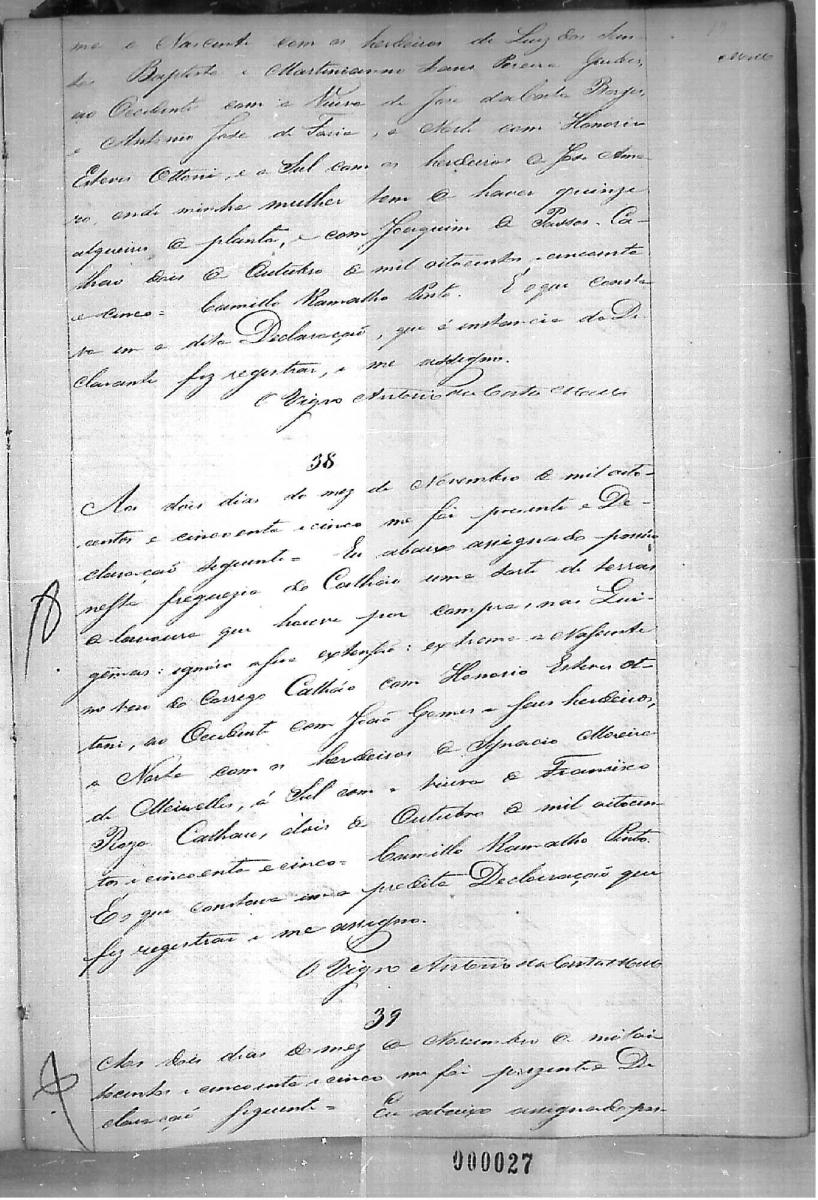 me o Nascente com os herdeiros de Luiz dos San-
tos Baptista e Martinianno Pereira
ao Occidente com a Viuva de Jose da Costa Borges,
e Antonio Jose de Faria, a Norte com Honorio
Esteves Ottoni, e a Sul com os herdeiros de Jose Ama-
ro, onde minha mulher tem de haver quinze
alqueires de planta, e com Joaquim de Passos. Ca-
lhao dois de Outubro de mil oitocentos e cincoenta
e cinco = Camillo Ramalho Pinto. É o que consta
va em a dita Declaraçaõ, que é instancia do De-
clarante fiz registrar, e me assigno.
O Vigro Antonio da Costa
38
Aos dois dias do mez de Novembro de mil oito-
centos e cincoenta e cinco me foi presente a De-
claraçaõ seguinte = Eu abaixo assignado possúo
nesta freguezia do Calhão uma sorte de terras
de lavoura que houve por compra, nas Lui-
gennas: ignóro a sua extensão: extrema a Nascente
no veio do Corrego Calháo com Honorio Esteves Ot-
toni, ao Occidente com João Gomes e seus herdeiros,
a Norte com os herdeiros de Ignacio Moreira
de Meirelles, á Sul com a viuva de Francisco
Calhau, dois de Outubro de mil oitocen-
tos e cincoenta e cinco = Camillo Ramalho Pinto.
É o que constava em a predita Declaração que
fiz registrar e me assigno.
O Vigro Antonio da Costa
39
Aos dois dias do mez de Novembro de mil oi
tocentos e cincoenta e cinco me foi prezente a De
claraçaõ seguinte = Eu abaixo assignado pos-
000027